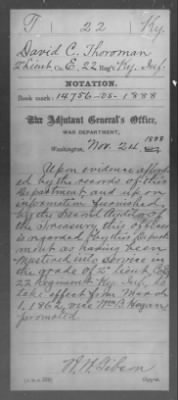 T | 22 | Ky.
David C. Thoroman
2 Lieut. Co. E, 22 Reg't Ky. Inf.
NOTATION.
Book mark: 14756-25-1888
The Adjutant General's Office,
WAR DEPARTMENT,
Washington, Nov. 24 1888
Upon evidence afford-
ed by the records of this
Department and upon
information furnished
by the Second Auditor of
the Treasury, this officer
is regarded by this Depart-
ment as having been
mustered into service in
the grade of 2d Lieut. Co. E
22 Regiment Ky. Inf., to
take effect from March
1, 1862, vice Wm. B. Hegan
promoted.
Copyist.